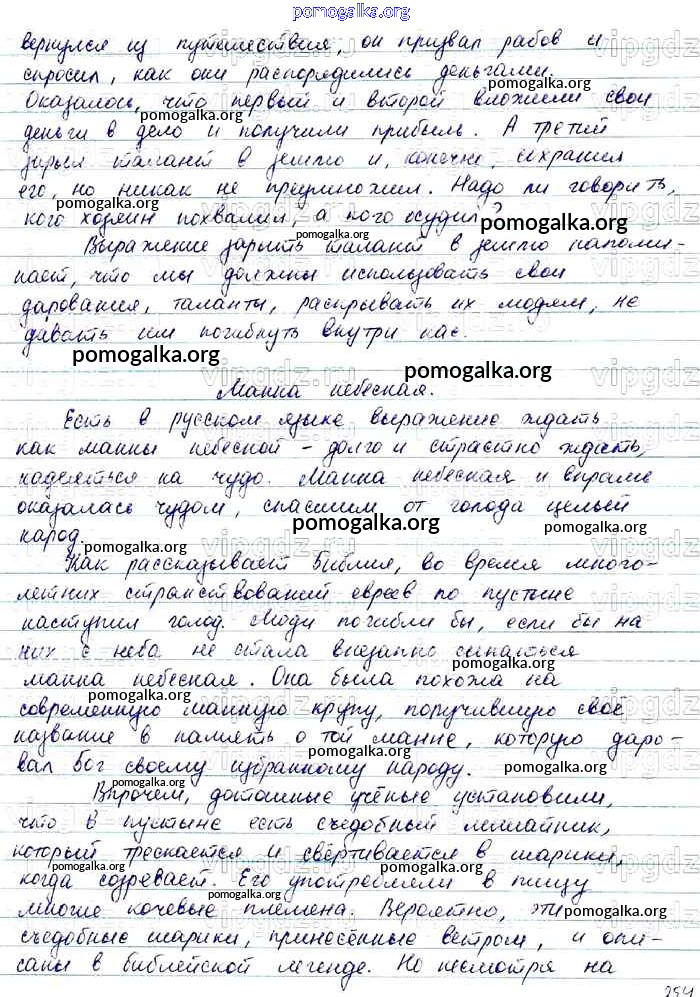 pomogalka.org
вернулся из путешествия, он призвал рабов и
спросил, как они распорядились деньгами.
Оказалось, что первый и второй вложили свои
деньги в дело и получили прибыль. А третий
зарыл талант в землю и, конечно, сохранил
его, но никак не преумножил. Надо ли говорить,
кого хозяин похвалил, а кого осудил?
pomogalka.org
Выражение зарыть талант в землю напоми-
нает, что мы должны использовать свои
дарования, таланты, раскрывать их людям, не
давать им погибнуть внутри нас.
pomogalka.org
pomogalka.org
Манна небесная.
Есть в русском языке выражение ждать
как манны небесной – долго и страстно ждать,
надеяться на чудо. Манна небесная и вправе
оказалась чудом, спасшим от голода целый
народ.
pomogalka.org
pomogalka.org
Как рассказывает Библия, во время много-
летних странствований евреев по пустыне
наступил голод. Люди погибли бы, если бы на
них с неба не стала внезапно сыпаться
pomogalka.org
манна небесная. Она была похожа на
pomogalka.org
современную манную крупу, получившую своё
название в память о той манне, которую даро-
pomogalka.org
вал Бог своему избранному народу.
pomogalka.org
pomogalka.org
Впрочем, дотошные учёные установили,
что в пустыне есть съедобный лишайник,
который трескается и свёртывается в шарики,
pomogalka.org
pomogalka.org
когда созревает. Его употребляли в пищу
многие кочевые племена. Вероятно, эти
pomogalka.org
pomogalka.org
съедобные шарики, принесённые ветром, и опи-
саны в библейской легенде. Но несмотря на
254